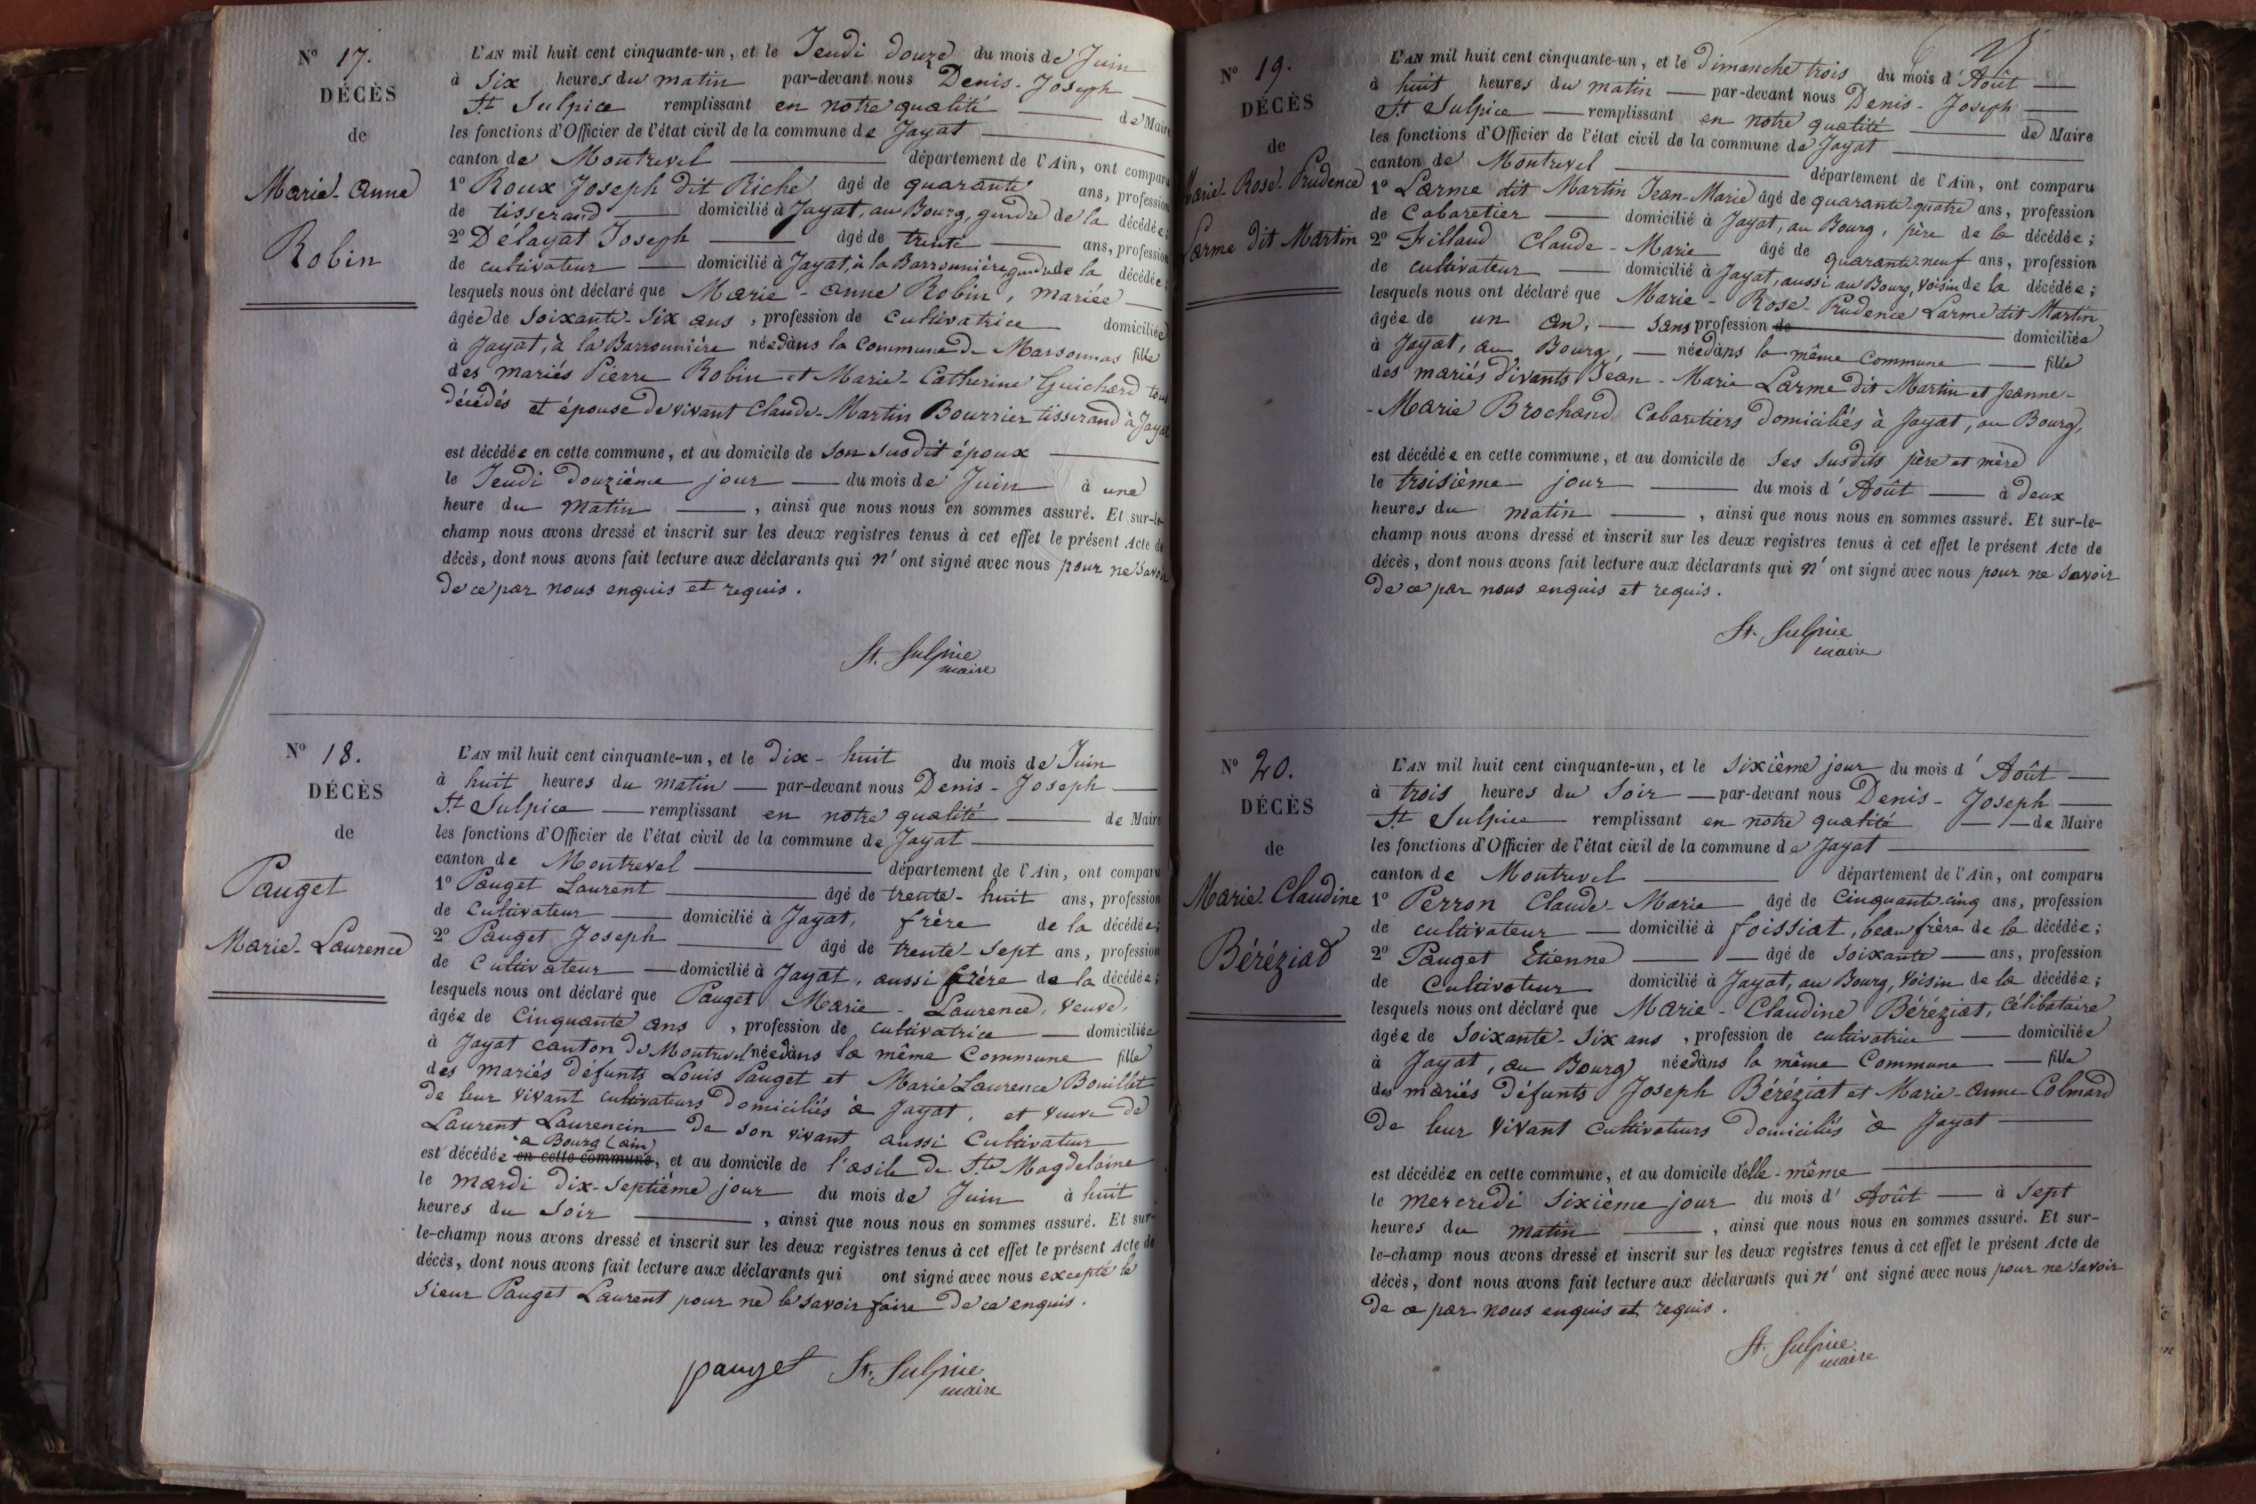 N° 17.
DÉCÈS
de
Marie-Anne
Robin
L'AN mil huit cent cinquante-un, et le Jeudi douze du mois de Juin
à Six heures du matin par-devant nous Denis-Joseph
St Sulpice remplissant en notre qualité de Maire
les fonctions d'Officier de l'état civil de la commune de Jayat
canton de Montrevel département de l'Ain, ont comparu
1° Roux Joseph dit Riche âgé de quarante ans, profession
de tisserand domicilié à Jayat, au Bourg, gendre de la décédée;
2° Délayat Joseph âgé de trente ans, profession
de cultivateur domicilié à Jayat, à la Barronnière gendre de la décédée;
lesquels nous ont déclaré que Marie-Anne Robin, mariée
âgée de Soixante-Six ans, profession de Cultivatrice domiciliée
à Jayat, à la Barronnière née dans la Commune de Marsonnas fille
des mariés Pierre Robin et Marie-Catherine Guichard tous
décédés et épouse de vivant Claude-Martin Bourrier tisserand à Jayat
est décédée en cette commune, et au domicile de son susdit époux
le Jeudi douzième jour du mois de Juin à une
heure du matin, ainsi que nous nous en sommes assuré. Et sur-le-
champ nous avons dressé et inscrit sur les deux registres tenus à cet effet le présent Acte de
décès, dont nous avons fait lecture aux déclarants qui n'ont signé avec nous pour ne savoir
de ce par nous enquis et requis.
St. Sulpice
maire
N° 18.
DÉCÈS
de
Pauget
Marie-Laurence
L'AN mil huit cent cinquante-un, et le dix-huit du mois de Juin
à huit heures du matin par-devant nous Denis-Joseph
St Sulpice remplissant en notre qualité de Maire
les fonctions d'Officier de l'état civil de la commune de Jayat
canton de Montrevel département de l'Ain, ont comparu
1° Pauget Laurent âgé de trente-huit ans, profession
de Cultivateur domicilié à Jayat, frère de la décédée;
2° Pauget Joseph âgé de trente-sept ans, profession
de Cultivateur domicilié à Jayat, aussi frère de la décédée;
lesquels nous ont déclaré que Pauget Marie-Laurence, veuve,
âgée de Cinquante ans, profession de cultivatrice domiciliée
à Jayat canton de Montrevel née dans la même Commune fille
des mariés défunts Louis Pauget et Marie Laurence Bouillet
de leur vivant cultivateurs domiciliés à Jayat, et veuve de
Laurent Laurencin de son vivant aussi Cultivateur
à Bourg (ain)
est décédée en cette commune, et au domicile de l'asile de Ste Magdelaine
le mardi dix-septième jour du mois de Juin à huit
heures du Soir, ainsi que nous nous en sommes assuré. Et sur-
le-champ nous avons dressé et inscrit sur les deux registres tenus à cet effet le présent Acte de
décès, dont nous avons fait lecture aux déclarants qui ont signé avec nous excepté le
sieur Pauget Laurent pour ne le savoir faire de ce enquis.
pauget St. Sulpice
maire
N° 19.
DÉCÈS
de
Marie-Rose-Prudence
Larme dit Martin
L'AN mil huit cent cinquante-un, et le dimanche trois du mois d'Août
à huit heures du matin par-devant nous Denis-Joseph
St Sulpice remplissant en notre qualité de Maire
les fonctions d'Officier de l'état civil de la commune de Jayat
canton de Montrevel département de l'Ain, ont comparu
1° Larme dit Martin Jean-Marie âgé de quarante-quatre ans, profession
de Cabaretier domicilié à Jayat, au Bourg, père de la décédée;
2° Fillaud Claude-Marie âgé de quarante-neuf ans, profession
de cultivateur domicilié à Jayat, aussi au Bourg, voisin de la décédée;
lesquels nous ont déclaré que Marie-Rose-Prudence Larme dit Martin
âgée de un an, sans profession de domiciliée
à Jayat, au Bourg, née dans la même Commune fille
des mariés vivants Jean-Marie Larme dit Martin et Jeanne-
-Marie Brochand Cabaretiers domiciliés à Jayat, au Bourg,
est décédée en cette commune, et au domicile de ses susdits père et mère
le troisième jour du mois d'Août à deux
heures du matin, ainsi que nous nous en sommes assuré. Et sur-le-
champ nous avons dressé et inscrit sur les deux registres tenus à cet effet le présent Acte de
décès, dont nous avons fait lecture aux déclarants qui n'ont signé avec nous pour ne savoir
de ce par nous enquis et requis.
St. Sulpice
maire
N° 20.
DÉCÈS
de
Marie-Claudine
Béréziad
L'AN mil huit cent cinquante-un, et le sixième jour du mois d'Août
à trois heures du Soir par-devant nous Denis-Joseph
St Sulpice remplissant en notre qualité de Maire
les fonctions d'Officier de l'état civil de la commune de Jayat
canton de Montrevel département de l'Ain, ont comparu
1° Perron Claude-Marie âgé de Cinquante-cinq ans, profession
de cultivateur domicilié à foissiat, beau frère de la décédée;
2° Pauget Etienne âgé de soixante ans, profession
de Cultivateur domicilié à Jayat, au Bourg, voisin de la décédée;
lesquels nous ont déclaré que Marie-Claudine Béréziat, Célibataire
âgée de Soixante-Six ans, profession de cultivatrice domiciliée
à Jayat, au Bourg née dans la même Commune fille
des mariés défunts Joseph Béréziat et Marie-Anne Colmard
de leur vivant Cultivateurs domiciliés à Jayat
est décédée en cette commune, et au domicile d'elle-même
le mercredi Sixième jour du mois d'Août à Sept
heures du matin, ainsi que nous nous en sommes assuré. Et sur-
le-champ nous avons dressé et inscrit sur les deux registres tenus à cet effet le présent Acte de
décès, dont nous avons fait lecture aux déclarants qui n'ont signé avec nous pour ne savoir
de ce par nous enquis et requis.
St. Sulpice
maire